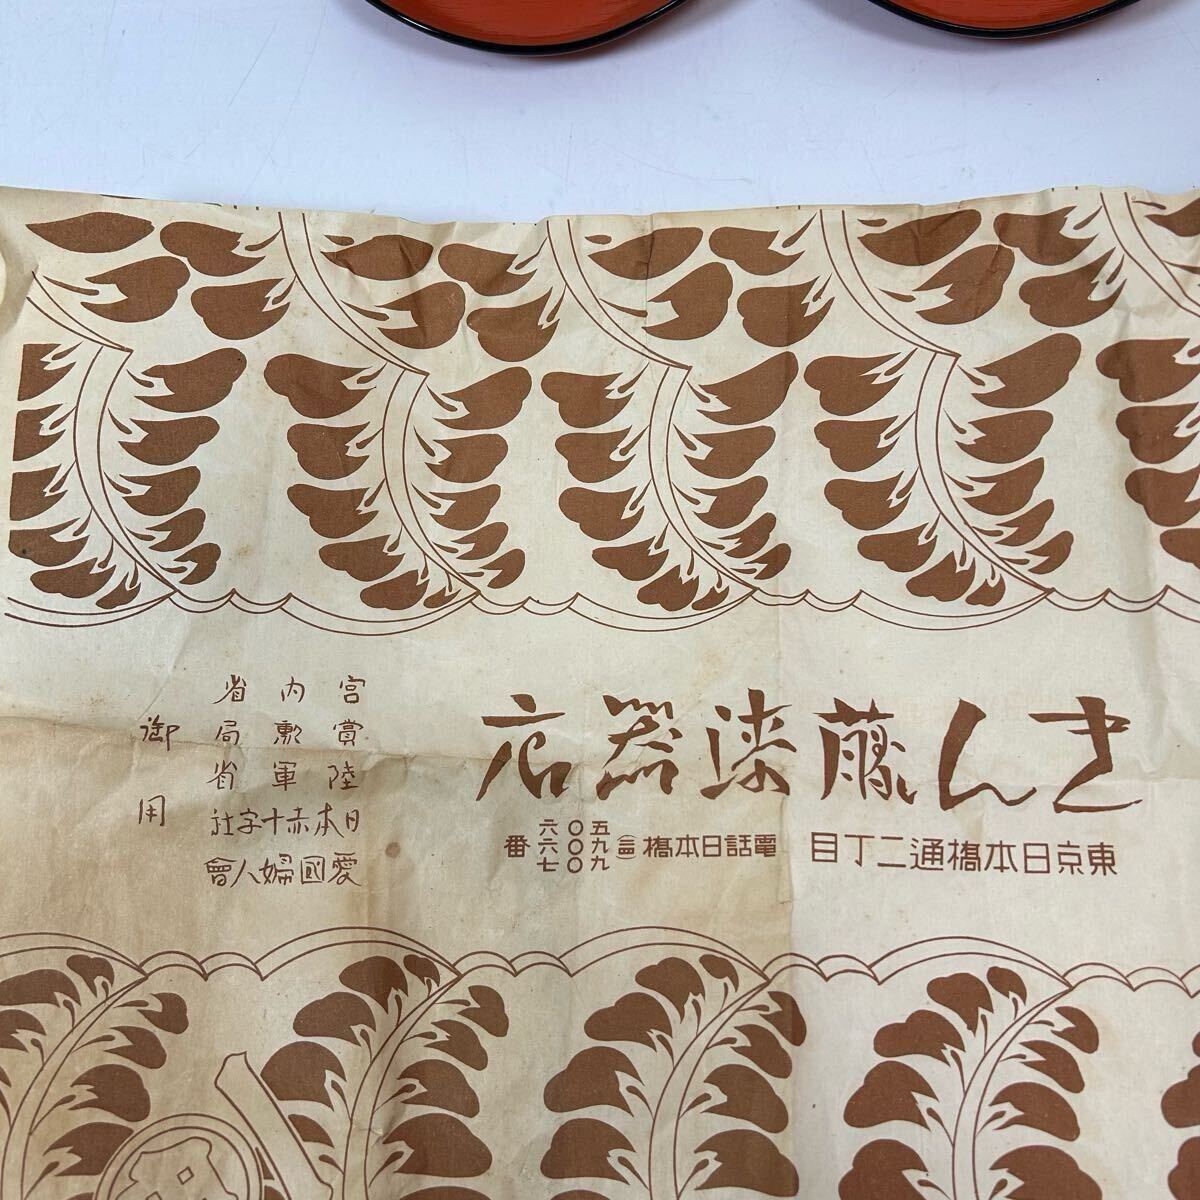 きん藤漆器店
東京日本橋通二丁目 電話日本橋 五〇六 九〇六 九〇七 番
宮内省
賞勲局
陸軍省
日本赤十字社
愛國婦人會
御用